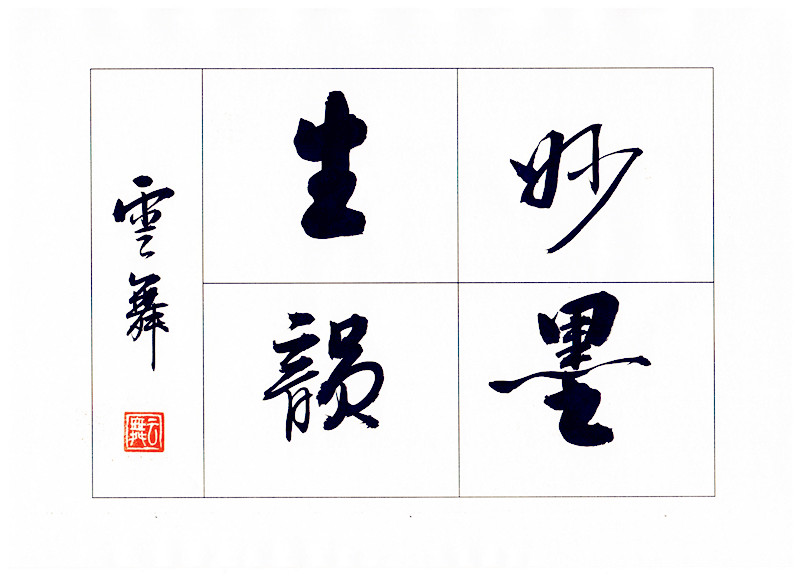 妙墨
生韻
雲舞
云舞